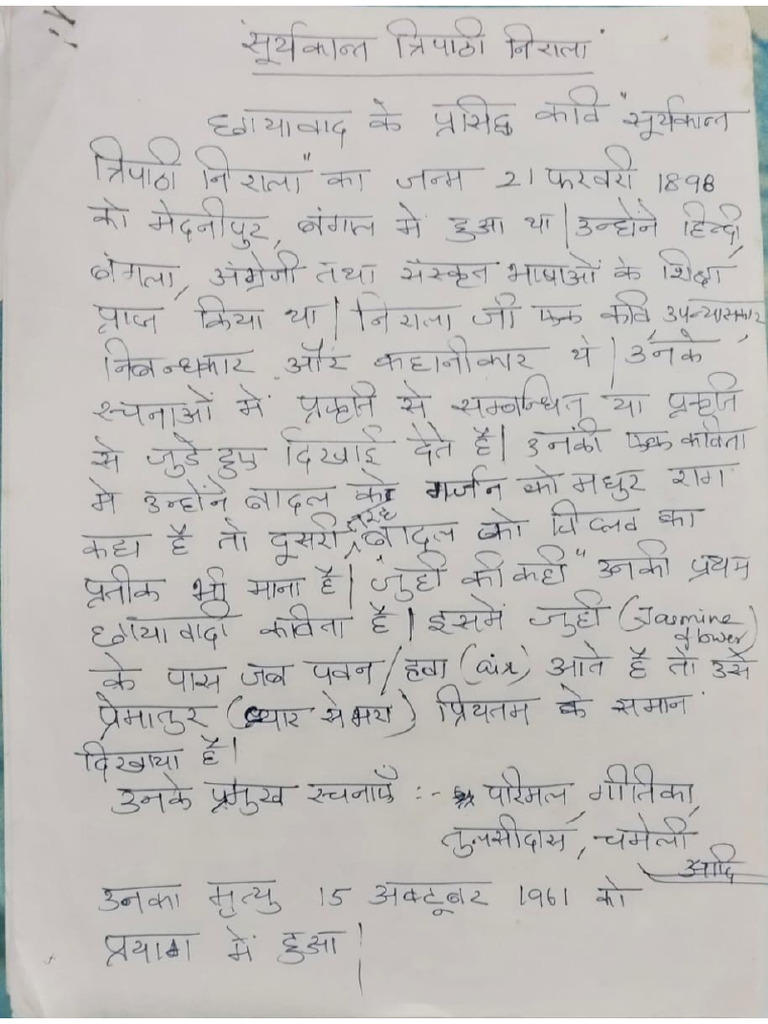 सूर्यकान्त त्रिपाठी निराला
छायावाद के प्रसिद्ध कवि "सूर्यकान्त
त्रिपाठी निराला" का जन्म 21 फरवरी 1898
को मेदनीपुर, बंगाल में हुआ था | उन्होंने हिन्दी,
बंगला, अंग्रेजी तथा संस्कृत भाषाओं के शिक्षा
प्राप्त किया था | निराला जी एक कवि, उपन्यासकार,
निबन्धकार और कहानीकार थे | उनके
रचनाओं में प्रकृति से सम्बन्धित या प्रकृति
से जुड़े हुए दिखाई देते है | उनकी एक कविता
मे उन्होंने बादल के गर्जन को मधुर राग
कहा है तो दूसरी तरह बादल को विप्लव का
प्रतीक भी माना है | "जुही की कही" उनकी प्रथम
छायावादी कविता है | इसमें जुही (Jasmine flower)
के पास जब पवन/हवा (air) आते है तो उसे
प्रेमातुर (प्यार से भरा) प्रियतम के समान
दिखाया है |
उनके प्रमुख रचनाएँ :- परिमल, गीतिका,
तुलसीदास, चमेली
आदि
उनका मृत्यु 15 अक्टूबर 1961 को
प्रयाग में हुआ |